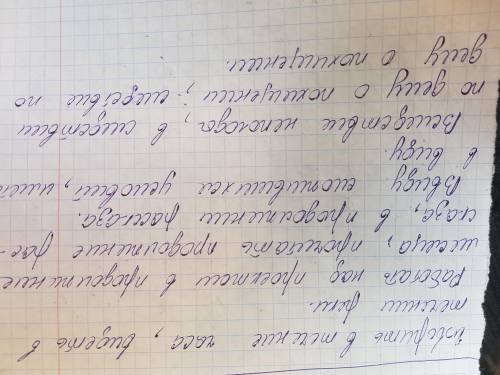 говорить в течение часа, видеть в
течении реки.
Работать над проектом в продолжение
месяца, прочитать продолжение рас-
сказа, в продолжении рассказа.
Ввиду сложившихся условий, иметь
в виду.
Вследствие непогоды, в следствии
по делу о похищении, следствие по
делу о похищении.